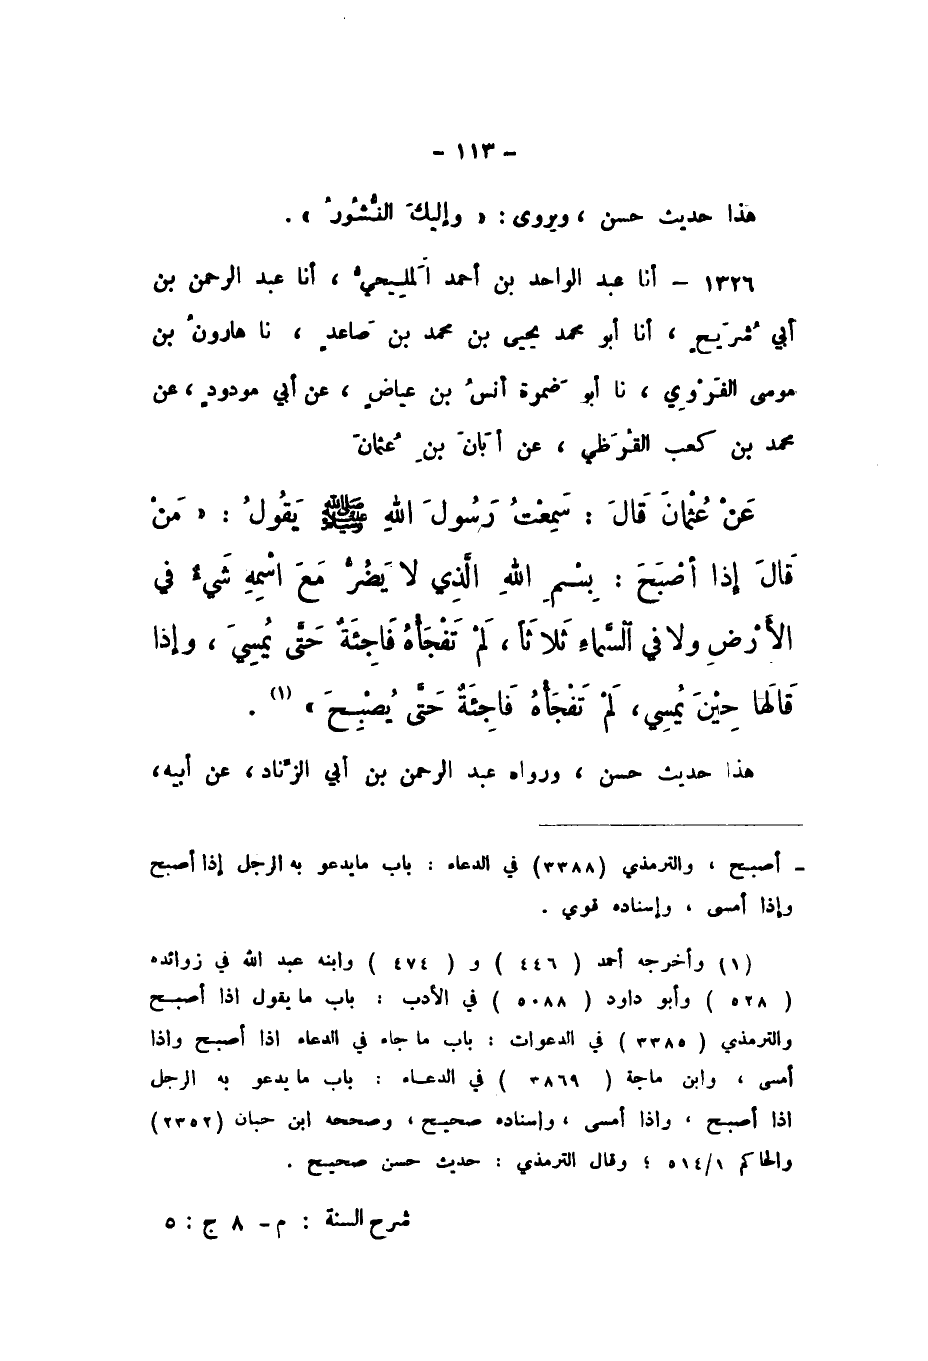 - ١١٣ -
هذا حديث حسن ، ويروى : « وإليكَ النُّشُورُ » .
١٣٢٦ - أنا عبد الواحد بن أحمد الَمليحيُّ ، أنا عبد الرحمن بن
أبي شُرَيحٍ ، أنا أبو محمد يحيى بن محمد بن صَاعدٍ ، نا هارونُ بن
موسى الفَرْوِي ، نا أبو ضَمرة أنسُ بن عياضٍ ، عن أبي مودودٍ ، عن
محمد بن كعب القُرَظي ، عن أَبَانَ بنِ عُثمانَ
عَنْ عُثْمَانَ قَالَ : سَمِعْتُ رَسُولَ اللهِ ﷺ يَقُولُ : « مَنْ
قَالَ إِذا أَصْبَحَ : بِسْمِ اللهِ الَّذِي لا يَضُرُّ مَعَ اسْمِهِ شَيءٌ في
الأَرْضِ ولا في السَّماءِ ثَلاثَاً ، لَمْ تَفْجَأْهُ فَاجِئَةٌ حَتَّى يُمسِيَ ، وإِذا
قَالَها حِيْنَ يُمسِي ، لَمْ تَفْجَأْهُ فَاجِئَةٌ حَتَّى يُصْبِحَ » (١) .
هذا حديث حسن ، ورواه عبد الرحمن بن أبي الزِّناد ، عن أبيه ،
- أصبح ، والترمذي (٣٣٨٨) في الدعاء : باب مايدعو به الرجل إذا أصبح
وإذا أمسى ، وإسناده قوي .
(١) وأخرجه أحمد ( ٤٤٦ ) و ( ٤٧٤ ) وابنه عبد الله في زوائده
( ٥٢٨ ) وأبو داود ( ٥٠٨٨ ) في الأدب : باب ما يقول اذا أصبح
والترمذي ( ٣٣٨٥ ) في الدعوات : باب ما جاء في الدعاء اذا أصبح واذا
أمسى ، وابن ماجة ( ٣٨٦٩ ) في الدعاء : باب ما يدعو به الرجل
اذا أصبح ، واذا أمسى ، وإسناده صحيح ، وصححه ابن حبان (٢٣٥٢)
والحاكم ٥١٤/١ ؛ وقال الترمذي : حديث حسن صحيح .
شرح السنة : م - ٨ ج : ٥